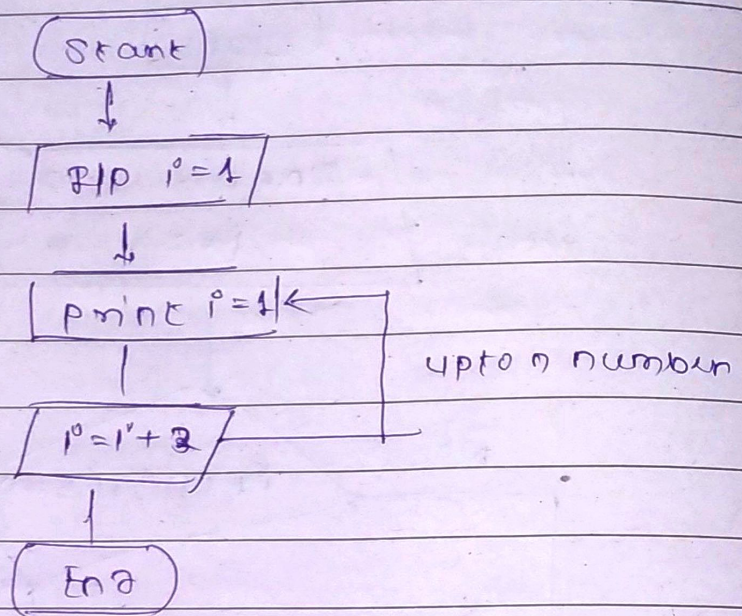 Start
I/P i=1
print i=1
upto n number
i=i+2
End